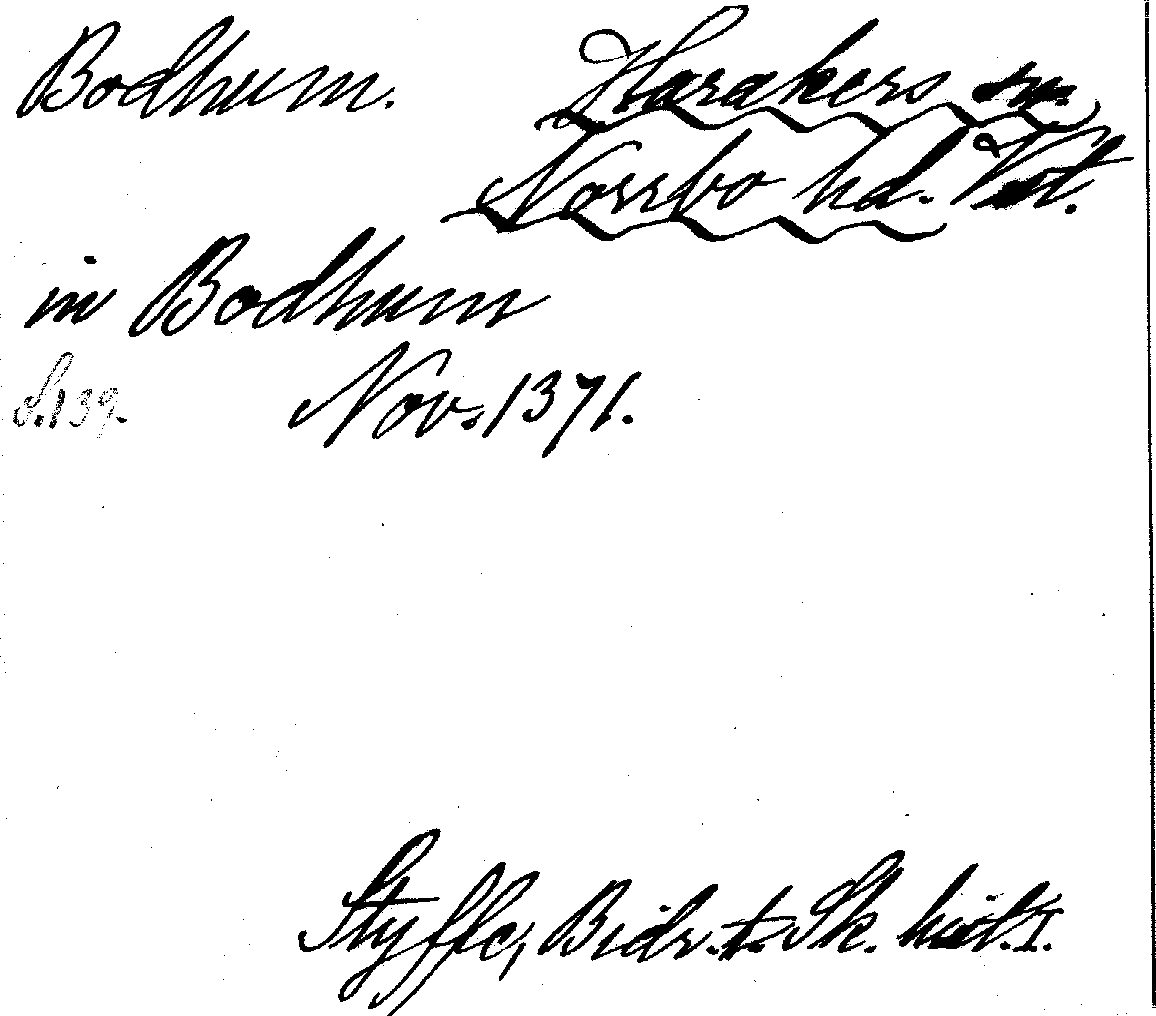 Bodhum. Harakers sn.
Norrbo hd. Vstl.
in Bodhum
S. 139. Nov. 1371.
Styffe, Bidr. t. Sk. hist. I.